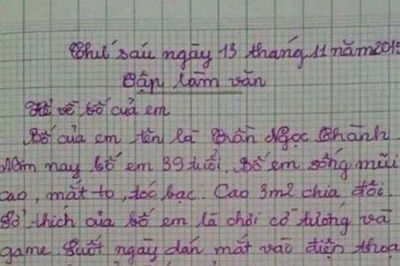 Thứ sáu ngày 13 tháng 11 năm 2015
Tập làm văn
Kể về bố của em
Bố của em tên là Trần Ngọc Thành
Năm nay bố em 39 tuổi. Bố em sống mũi
cao, mắt to, tóc bạc. Cao 3m2 chia đôi.
Sở thích của bố em là chơi cờ tướng và
game. Suốt ngày dán mắt vào điện thoạ